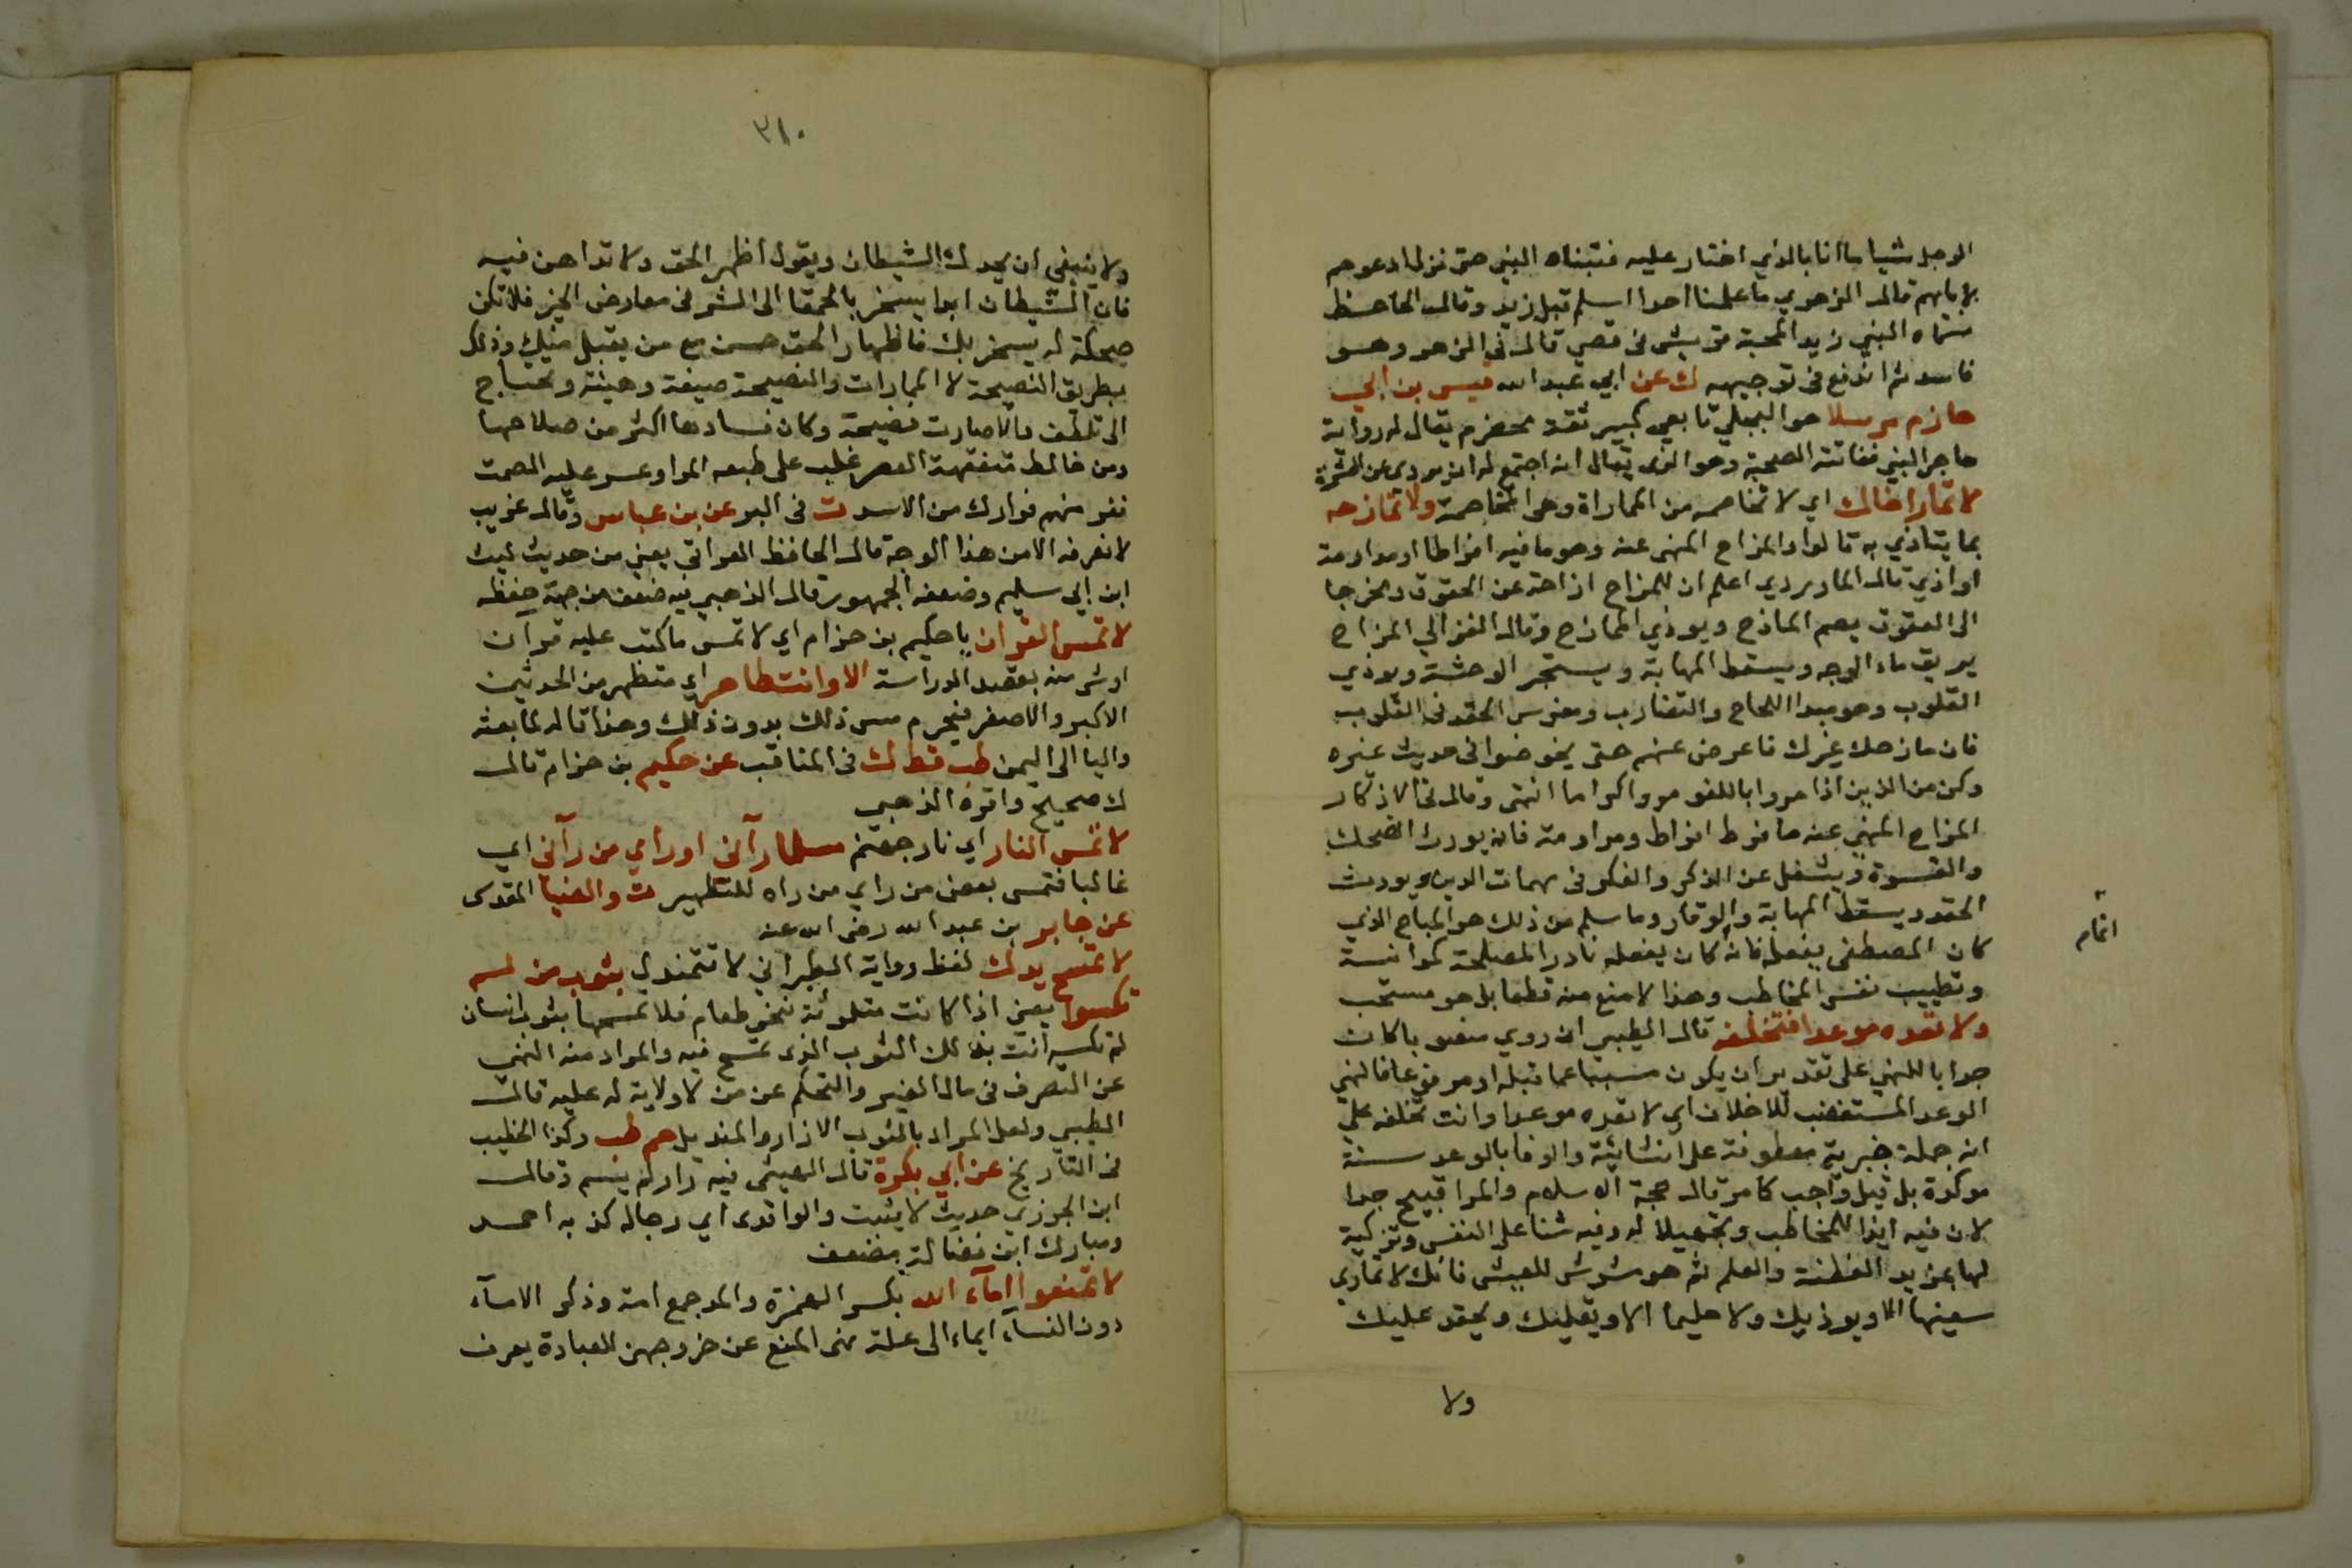 الرجل شيا ما انا بالذي اختار عليه فتبناه النبي حتى نزل ادعوهم
لابايهم قال الزهري ما علمنا احدا اسلم قبل زيد وقال الحافظ
سماه النبي زيدا لمحبة قريش في قصي قال في الزهر وهو
فاسد ثم اندفع في توجيهه ك عن ابي عبد الله قيس بن ابي
حازم مرسلا هو البجلي تابعي كبير ثقة مخضرم يقال له رواية
هاجر النبي ففاتته الصحبة وهو الذي يقال انه اجتمع له ان يروى عن العشرة
لا تمار اخاك اي لا تخاصمه من المماراة وهي المخاصمة ولا تمازحه
بما يتاذي به قالوا والمزاح المنهي عنه وهو ما فيه افراط او مداومة
او اذي قال الماوردي اعلم ان للمزاح ازاحة عن الحقوق ومخرجا
الى العقوق يصم المازح ويوذي الممازح وقال الغزالي المزاح
يريق ماء الوجه ويسقط المهابة ويستجر الوحشة ويوذي
القلوب وهو مبدا اللجاج والتضارب ومغرس الحقد في القلوب
فان مازحك غيرك فاعرض عنهم حتى يخوضوا في حديث غيره
وكن من الذين اذا مروا باللغو مروا كراما انتهى وقال في الاذكار
المزاح المنهي عنه ما فرط افراط ومداومة فانه يورث الضحك
والقسوة ويشغل عن الذكر والفكر في مهمات الدين ويورث
الحقد ويسقط المهابة والوقار وما سلم من ذلك هو المباح الذي
كان المصطفى يفعله فانه كان يفعله نادرا لمصلحة كموانسة
وتطييب نفس المخاطب وهذا لا منع منه قطعا بل هو مستحب
ولا تعده موعدا فتخلفه قال الطيبي ان روي منصوبا كان
جوابا للنهي على تقدير ان يكون مسببا عما قبله او مرفوعا فالنهي
الوعد المستعقب للاخلاف اي لا تعده موعدا وانت تخلفه على
انه جملة خبرية معطوفة على انشائية والوفا بالوعد سنة
موكدة بل قيل واجب كما مر قال حجة الاسلام والمرا قبيح جدا
لان فيه ايذا للمخاطب وتجهيلا له وفيه ثنا على النفس وتزكية
لها بمزيد الفطنة والعلم ثم هو مشوش للعيش فانك لا تماري
سفيها الا ويوذيك ولا حليما الا ويقليك ويحقد عليك
ولا
اتمام
٣٨٠
ولا ينبغي ان يخدعك الشيطان ويقول اظهر الحق ولا تداهن فيه
فان الشيطان ابدا يسخر بالحمقا الى الشر في معارض الخير فلا تكن
ضحكة له يسخر بك فاظهار الحق حسن مع من يقبل منك وذلك
بطريق النصيحة لا المماراة والنصيحة صيغة وهيئة ويحتاج
الى تلطف والا صارت فضيحة وكان فسادها اكثر من صلاحها
ومن خالط متفقهة العصر غلب على طبعه المرا وعسر عليه الصمت
ففر منهم فرارك من الاسد ت في البر عن بن عباس وقال غريب
لا نعرفه الا من هذا الوجه قال الحافظ العراقي يعني من حديث ليث
ابن ابي سليم وضعفه الجمهور قال الذهبي فيه ضعف من جهة حفظه
لا تمس القران يا حكيم بن حزام اي لا تمس ما كتب عليه قرآن
او شي منه بقصد الدراسة الا وانت طاهر اي متطهر من الحدثين
الاكبر والاصغر فيحرم مس ذلك بدون ذلك وهذا قاله لما بعثه
واليا الى اليمن طب قط ك في المناقب عن حكيم بن حزام قال
ك صحيح واقره الذهبي
لا تمس النار اي نار جهنم مسلما رآني او راي من رآني اي
غالبا فتمس بعض من راي من راه للتطهير ت والضيا المقدسي
عن جابر بن عبد الله رضي الله عنه
لا تمسح يدك لفظ رواية الطبراني لا تتمندل بثوب من لم
تكسوا يعني اذا كانت متلوثة بنحو طعام فلا تمسحها بثوب انسان
لم تكسه انت بذلك الثوب الذي تمسح فيه والمراد منه النهي
عن التصرف في مال الغير والتحكم عن من لا ولاية له عليه قال
الطيبي ولعل المراد بالثوب الازار والمنديل حم طب وكذا الخطيب
في التاريخ عن ابي بكرة قال الهيثمي فيه راو لم يسم وقال
ابن الجوزي حديث لا يثبت والواقدي اي رجاله كذبه احمد
ومبارك ابن فضالة مضعف
لا تمنعوا اماء الله بكسر الهمزة والمد جمع امة وذكر الاماء
دون النساء ايماء الى علة نهي المنع عن خروجهن للعبادة يعرف